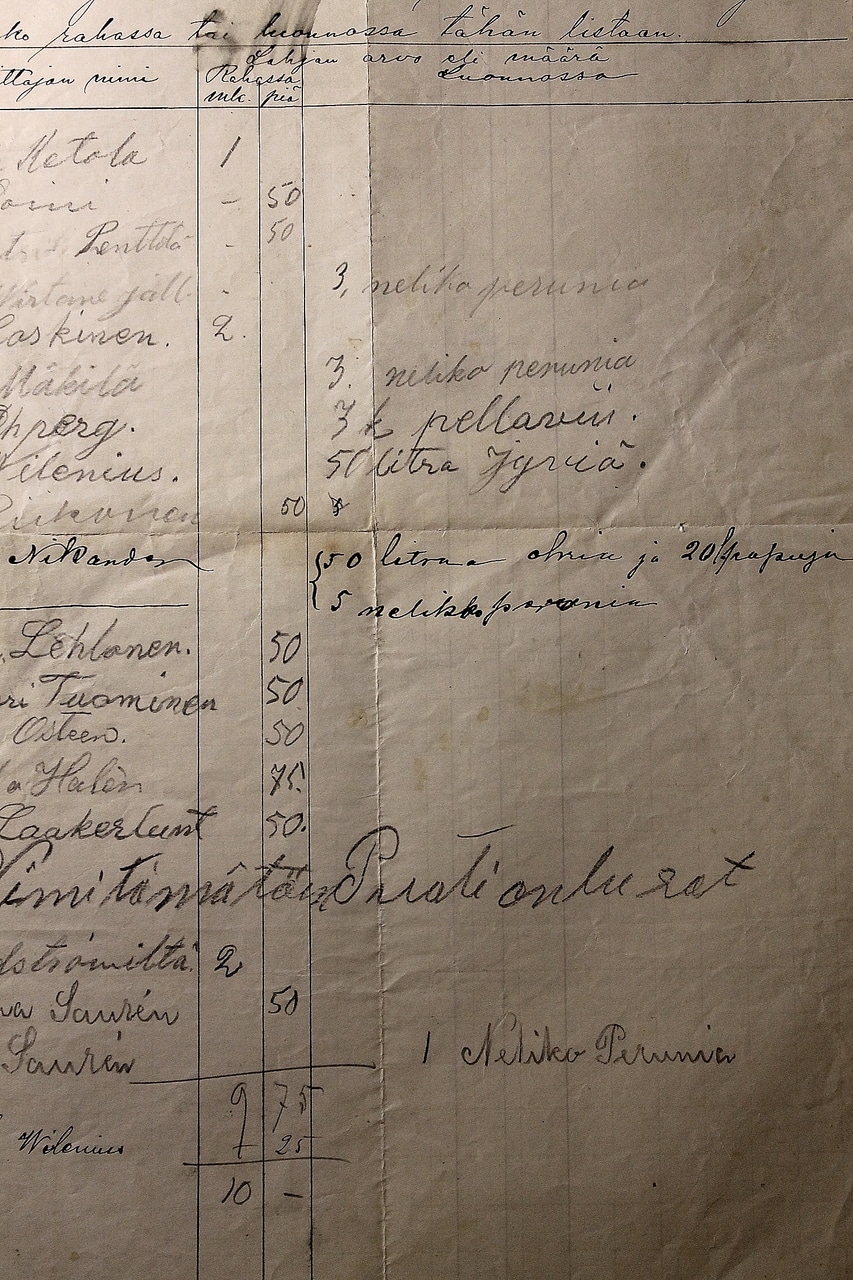 ko rahassa tai luonnossa tähän listaan.
Lahjan arvo eli määrä
ittajan nimi Rahassa Luonnossa
mk. piä
Ketola 1
- 50
Penttilä - 50
Wirtane jält - 3, neliko perunia
Koskinen. 2.
Mäkilä 3. neliko perunia
3 k pellaviii.
Wilenius. 50 litra Jyviä.
Riikonen 50
Nikander 50 litraa ohria ja 20 l papuja
5 nelikko perunia
Lehtonen. 50
ri Tuominen 50
Osteen. 50
Halèn 75.
Laakerlunt 50.
Nimitömätöin
dströmiltä. 2
na Saurén 50
Saurén 1 Neliko Perunia
9 75
Wilenius - 25
10 -